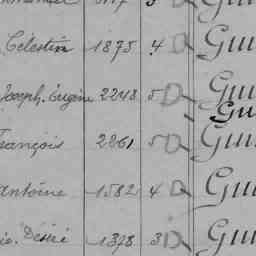 Célestin 1875 4 D Gui
Joseph, Eugène 2248 5 D Gui
Gui
rançois 2261 5 D Gui
antoine 1582 4 D Gui
ie. Désiré 1378 3 D Gui